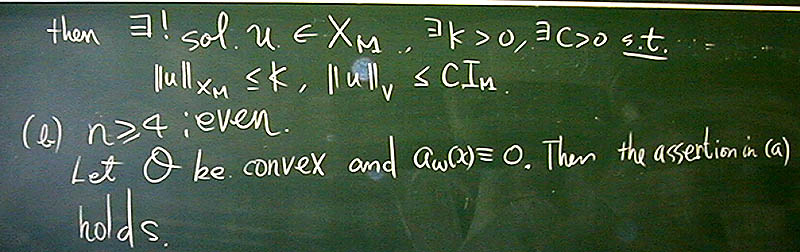 then ∃! sol. u ∈ X_M, ∃k>0, ∃C>0 s.t.
‖u‖_{X_M} ≤ k, ‖u‖_V ≤ C I_M.
(b) n≥4 ; even.
Let O be convex and a_w(x) ≡ 0. Then the assertion in (a)
holds.